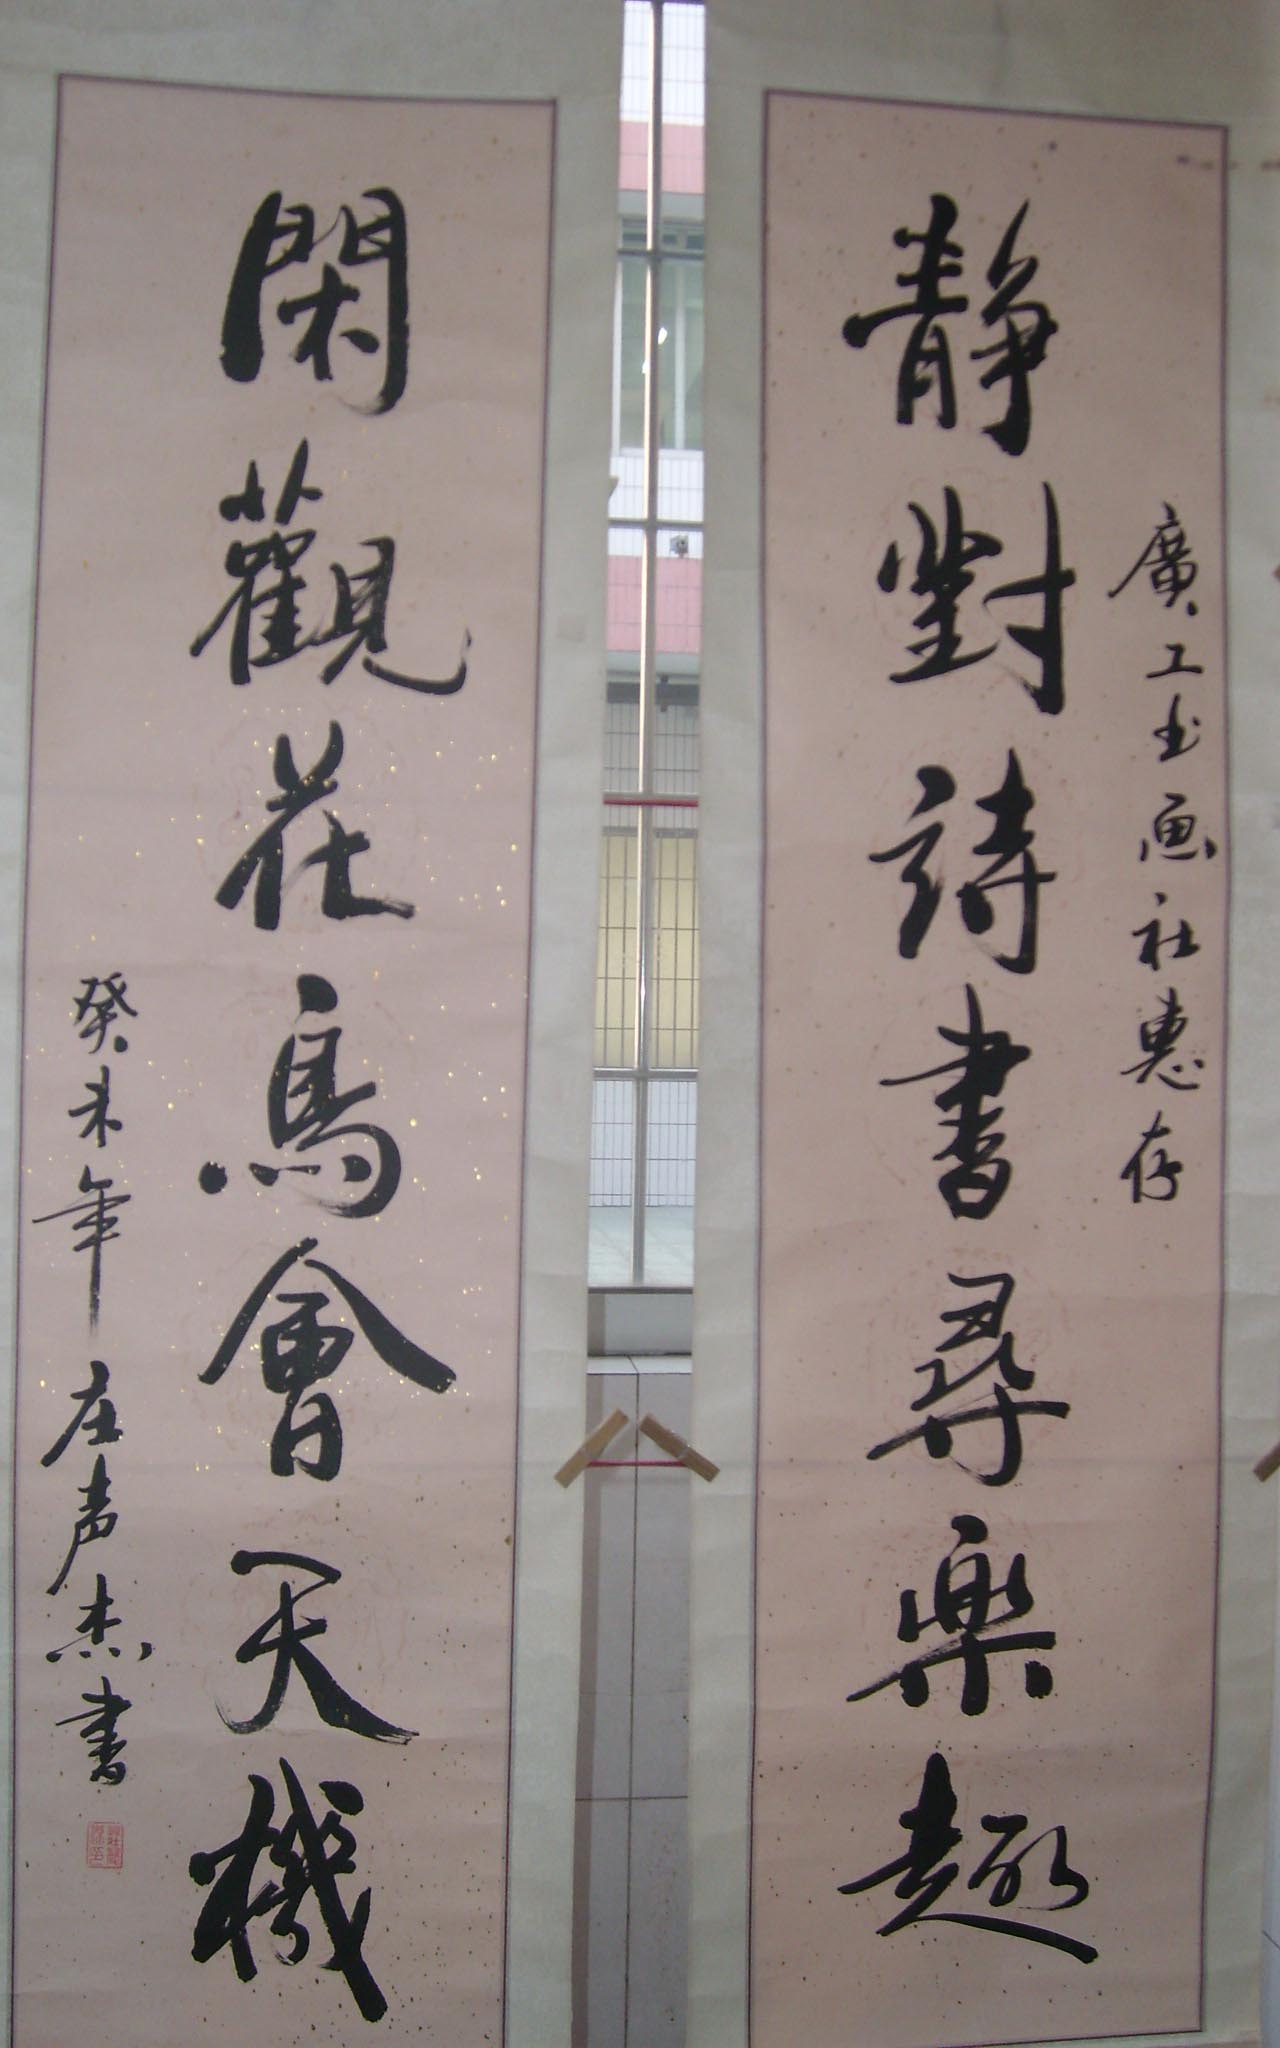 廣工书画社惠存
靜對詩書尋樂趣
閑觀花鳥會天機
癸未年庄声杰書